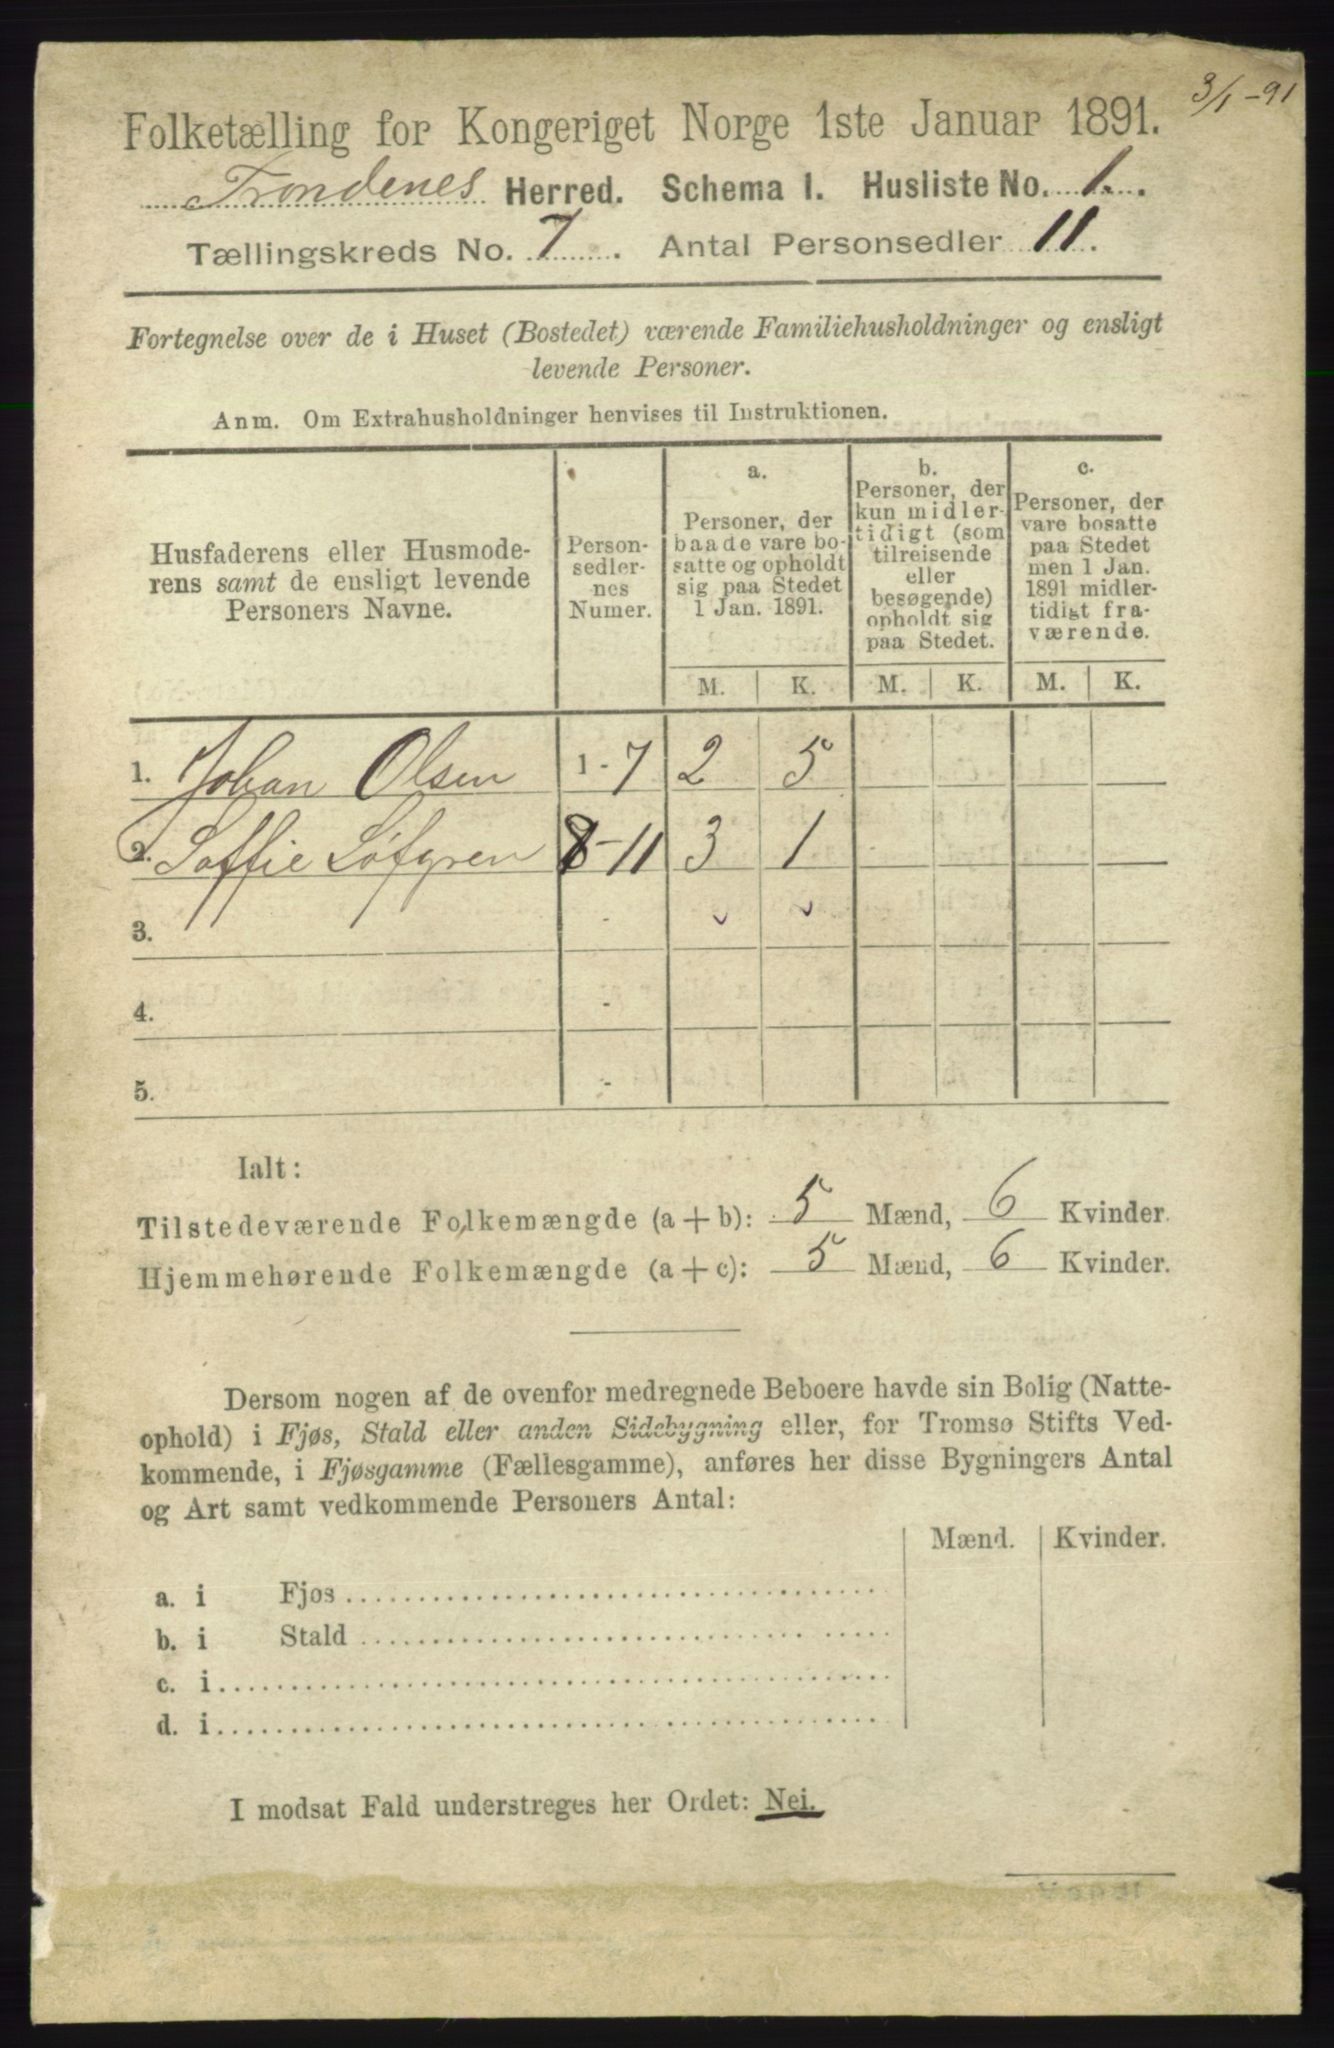 3/1-91
Folketælling for Kongeriget Norge 1ste Januar 1891.
Trondenes Herred. Schema I. Husliste No. 1.
Tællingskreds No. 7. Antal Personsedler 11.
Fortegnelse over de i Huset (Bostedet) værende Familiehusholdninger og ensligt
levende Personer.
Anm. Om Extrahusholdninger henvises til Instruktionen.
Husfaderens eller Husmode-
rens samt de ensligt levende
Personers Navne.
Person-
sedler-
nes
Numer.
a.
Personer, der
baade vare bo-
satte og opholdt
sig paa Stedet
1 Jan. 1891.
b.
Personer, der
kun midler-
tidigt (som
tilreisende
eller
besøgende)
opholdt sig
paa Stedet.
c.
Personer, der
vare bosatte
paa Stedet
men 1 Jan.
1891 midler-
tidigt fra-
værende.
M. K. M. K. M. K.
1. Johan Olsen 1-7 2 5
2. Soffie Löfgren 8-11 3 1
3. -
4. -
5. -
Ialt:
Tilstedeværende Folkemængde (a + b): 5 Mænd, 6 Kvinder.
Hjemmehørende Folkemængde (a + c): 5 Mænd, 6 Kvinder.
Dersom nogen af de ovenfor medregnede Beboere havde sin Bolig (Natte-
ophold) i Fjøs, Stald eller anden Sidebygning eller, for Tromsø Stifts Ved-
kommende, i Fjøsgamme (Fællesgamme), anføres her disse Bygningers Antal
og Art samt vedkommende Personers Antal:
Mænd. Kvinder.
a. i Fjøs
b. i Stald
c. i
d. i
I modsat Fald understreges her Ordet: Nei.